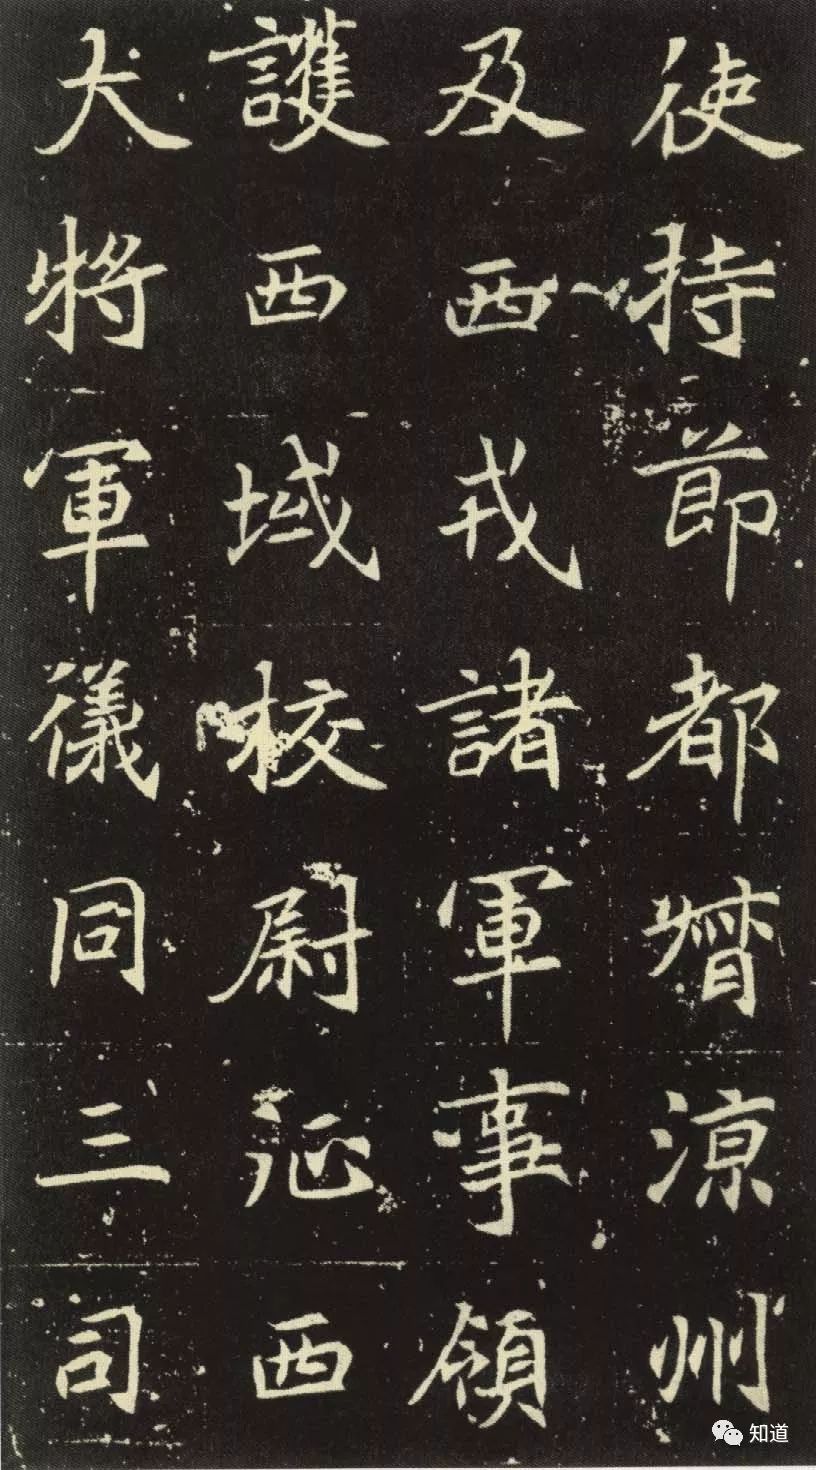 使持節都督涼州
及西戎諸軍事領
護西域校尉征西
大將軍儀同三司
知道